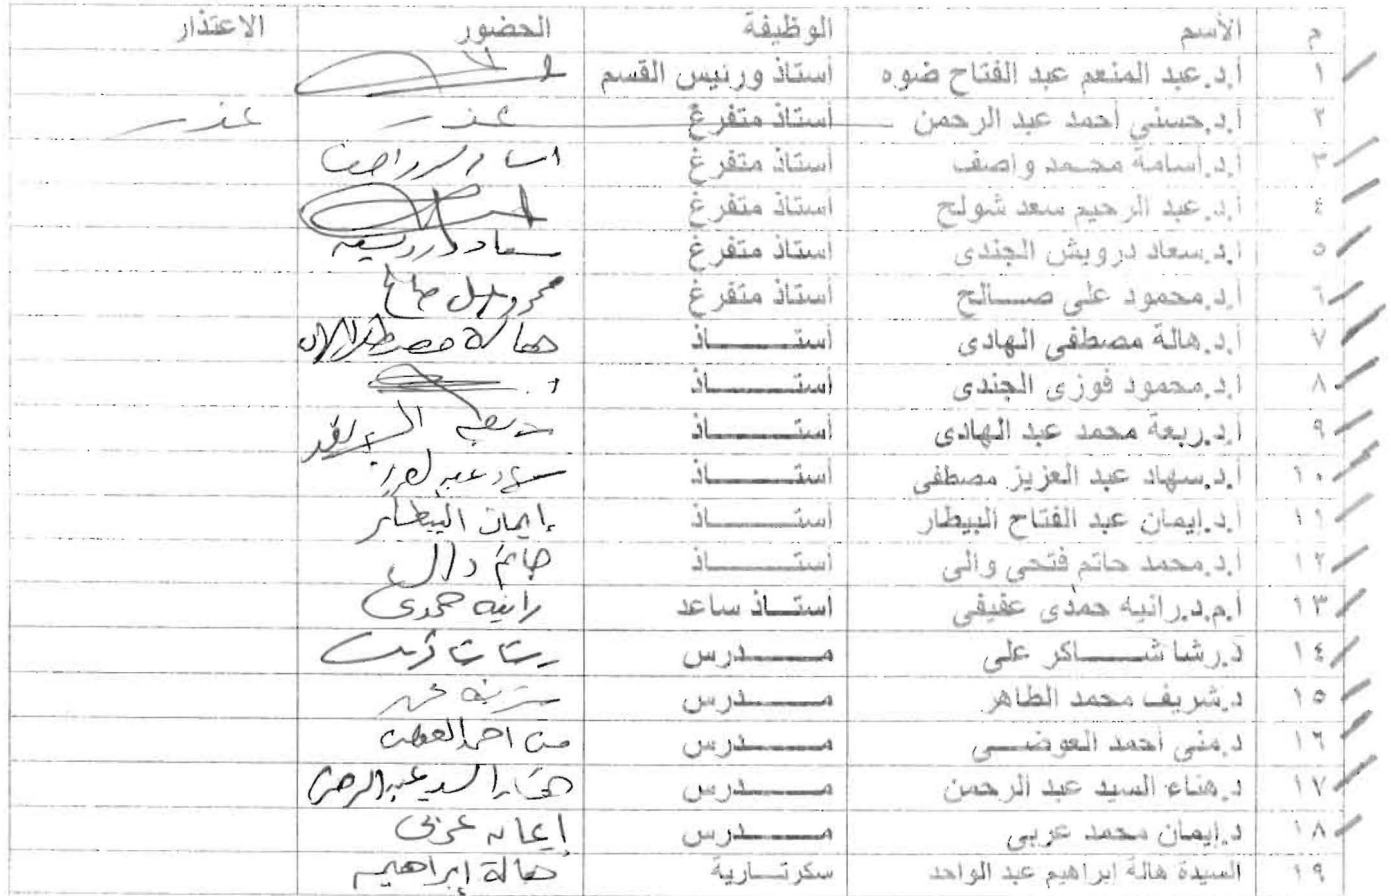 م الأسم الوظيفة الحضور الاعتذار
١ أ.د.عبد المنعم عبد الفتاح ضوه أستاذ ورئيس القسم
٢ أ.د.حسني أحمد عبد الرحمن أستاذ متفرغ عذر عذر
٣ أ.د.أسامة محمد واصف أستاذ متفرغ
٤ أ.د.عبد الرحيم سعد شولح أستاذ متفرغ
٥ أ.د.سعاد درويش الجندى أستاذ متفرغ سعاد درويش
٦ أ.د.محمود على صالح أستاذ متفرغ محمود على صالح
٧ أ.د.هالة مصطفى الهادى أستاذ هالة مصطفى الهادى
٨ أ.د.محمود فوزى الجندى أستاذ
٩ أ.د.ربعة محمد عبد الهادى أستاذ
١٠ أ.د.سهاد عبد العزيز مصطفى أستاذ سهاد عبد العزيز
١١ أ.د.إيمان عبد الفتاح البيطار أستاذ إيمان البيطار
١٢ أ.د.محمد حاتم فتحى والى أستاذ حاتم والى
١٣ أ.م.د.رانيه حمدى عفيفى استاذ ساعد رانيه حمدى
١٤ د.رشا شاكر على مدرس
١٥ د.شريف محمد الطاهر مدرس
١٦ د.منى أحمد العوضى مدرس منى احمد العوضى
١٧ د.هناء السيد عبد الرحمن مدرس هناء السيد عبد الرحمن
١٨ د.إيمان محمد عربى مدرس إيمان عربى
١٩ السيدة هالة ابراهيم عبد الواحد سكرتارية هالة إبراهيم